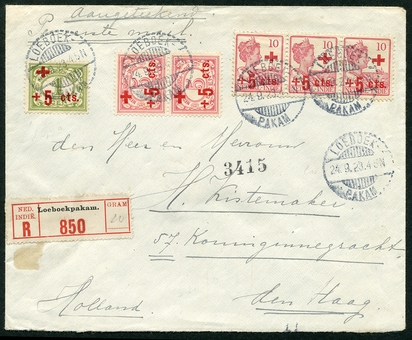 Aangeteekend
P. eerste mail.
LOEBOEK
PAKAM
+5 cts.
+5 cts.
+5 cts.
10
10
10
+5 cts.
+5 cts.
+5 cts.
LOEBOEK
24.9.23.4-5N
PAKAM
LOEBOEK
24.9.23.4-5N
PAKAM
den Heer en Mevrouw
3415
H. Kistemaker
NED. INDIË. Loeboekpakam. GRAM
R 850
57. Koninginnegracht,
Holland.
den Haag.